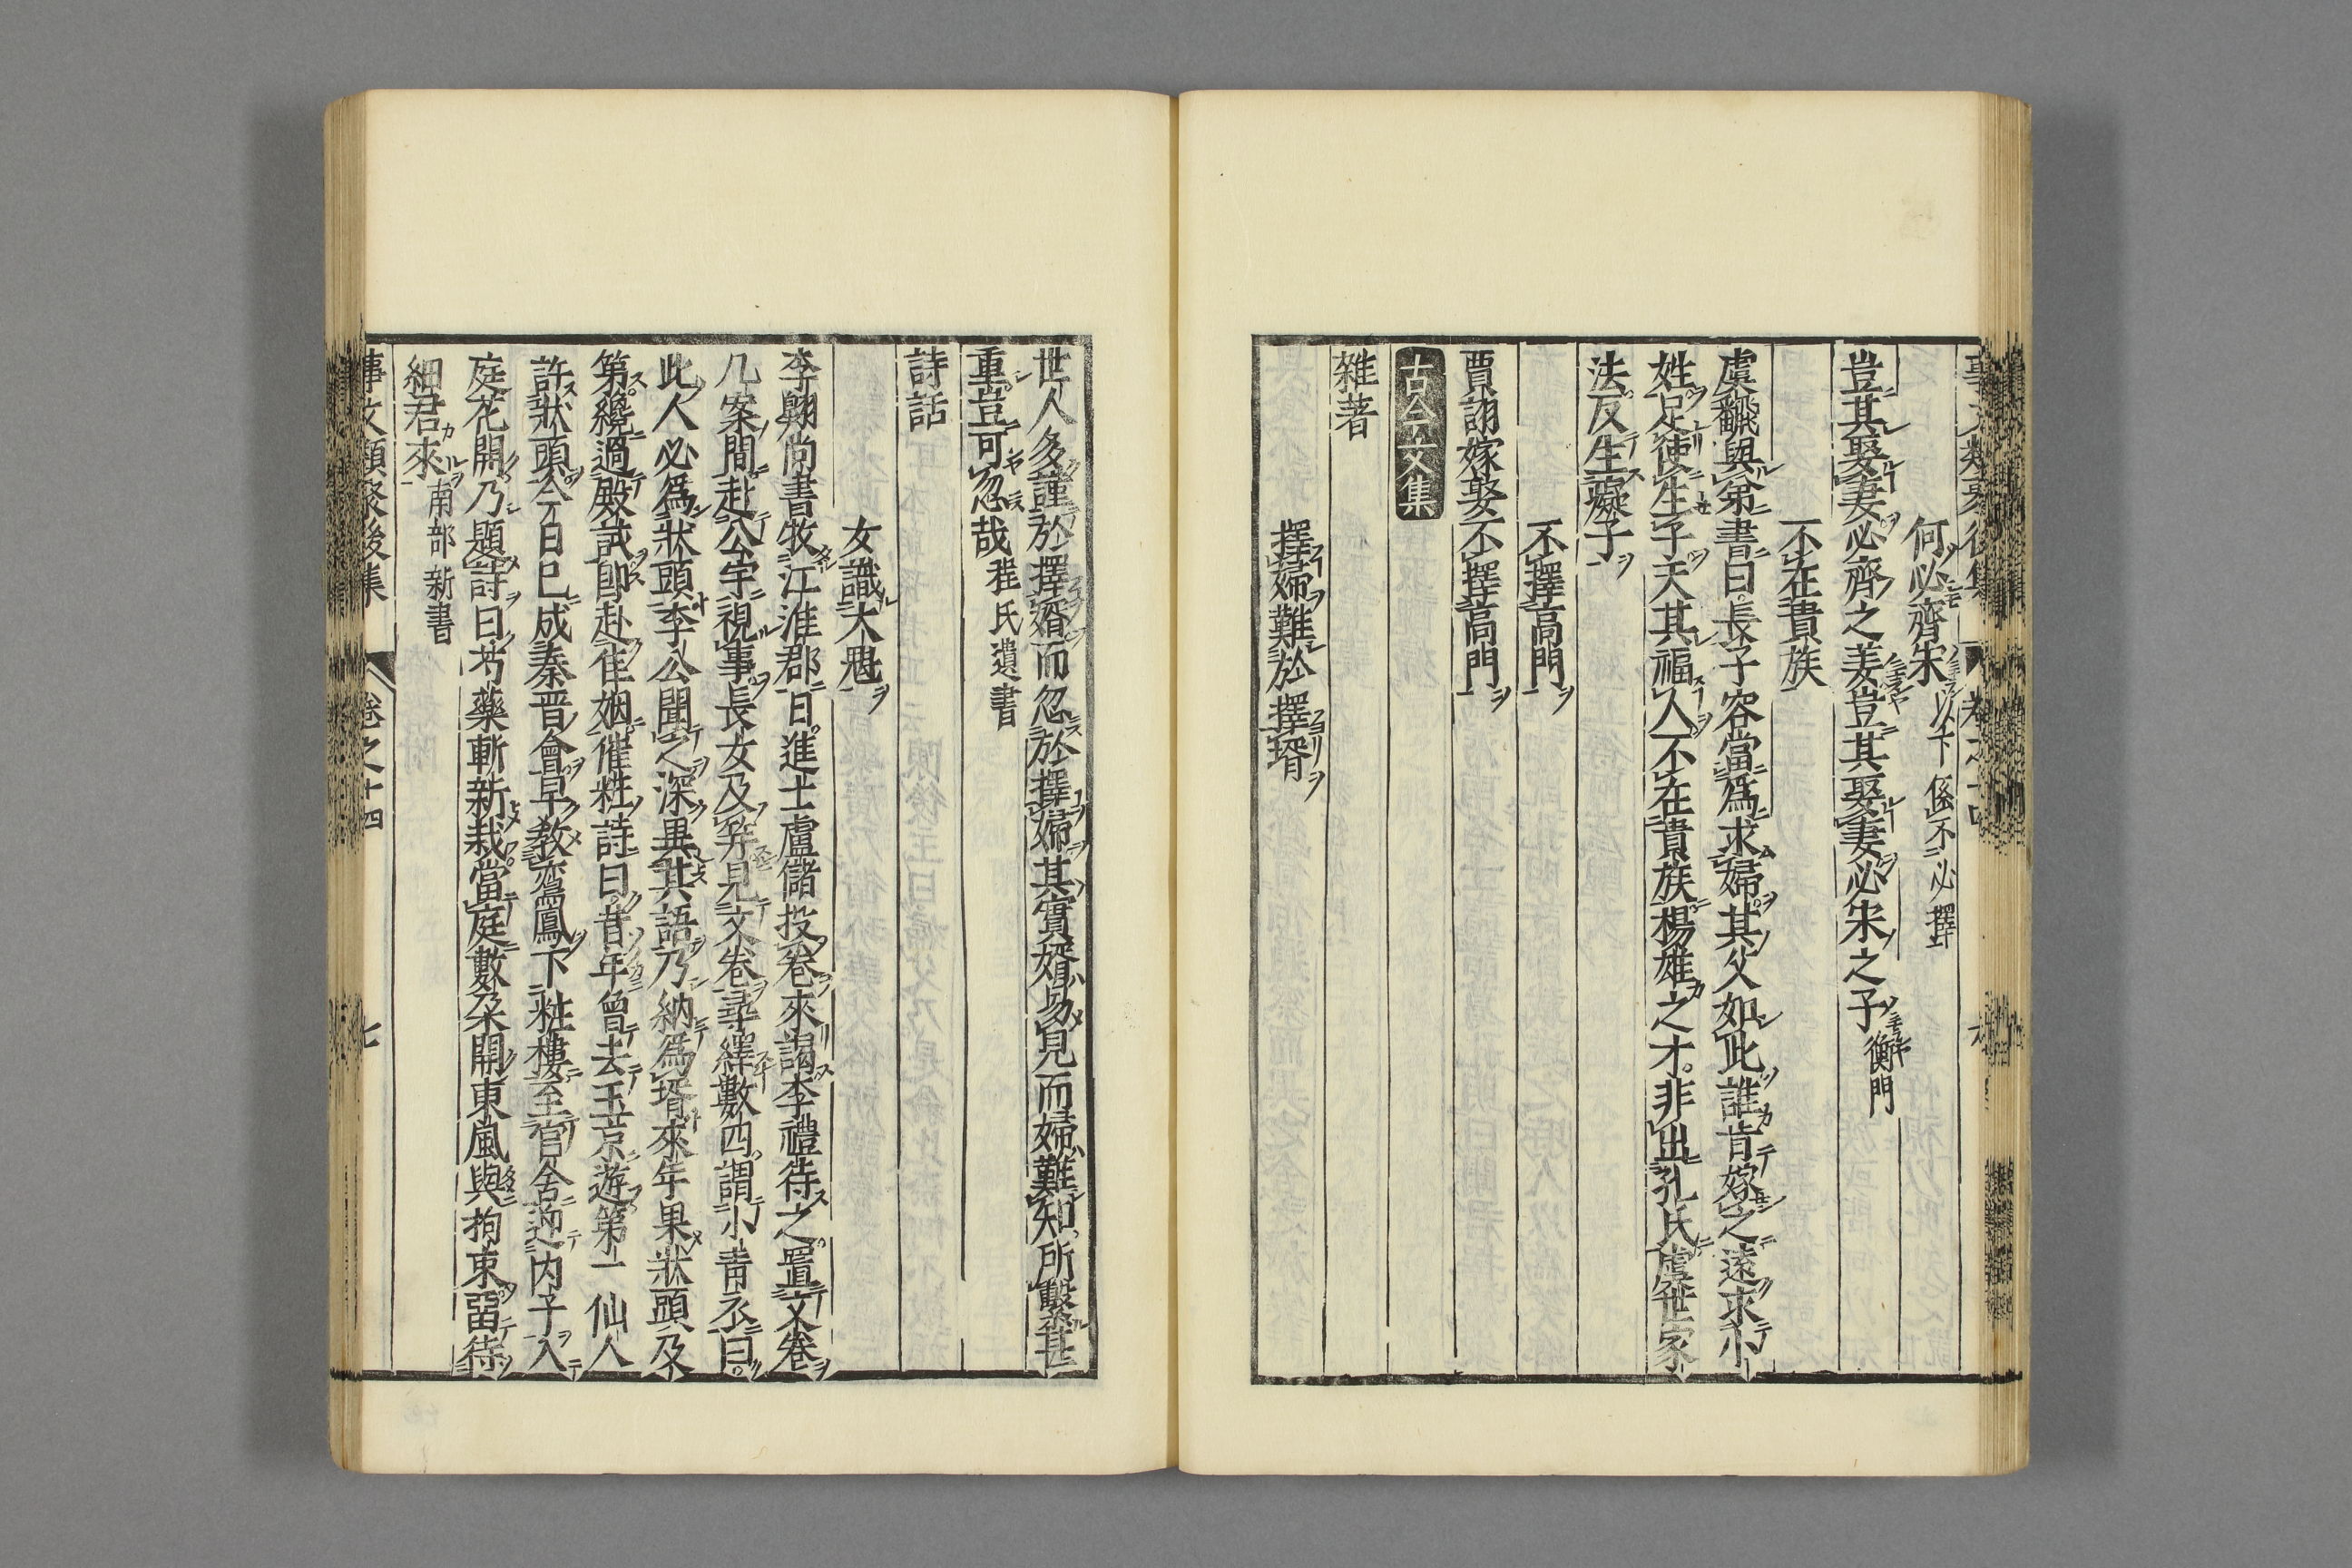 何必齊宋以下係不必擇
豈其娶妻必齊之姜豈其娶妻必宋之子衡門
不在貴族
虞飜與弟書曰長子容當爲求婦其父如此誰肯嫁之遠求小
姓足使生子天其福人不在貴族楊雄之才非出孔氏虞世家
法反生癡子
不擇高門
賈詡嫁娶不擇高門
古今文集
雜著
擇婦難於擇壻
世人多謹於擇壻而忽於擇婦其實壻易見而婦難知所繫甚
重豈可忽哉程氏遺書
詩話
女識大魁
李翺尚書牧江淮郡日進士盧儲投卷來謁李禮待之置文卷
几案間赴公宇視事長女及笄見文卷尋繹數四謂小青衣曰
此人必爲狀頭李公聞之深異其語乃納爲壻來年果狀頭及
第纔過殿試即赴佳姻催粧詩曰昔年曾去玉京遊第一仙人
許狀頭今日已成秦晋會早教鸞鳳下粧樓至官舍迎内子入
庭花開乃題詩曰芍藥斬新栽當庭數朶開東風與拘束留待
細君來南部新書
事文類聚後集 卷之十四 七